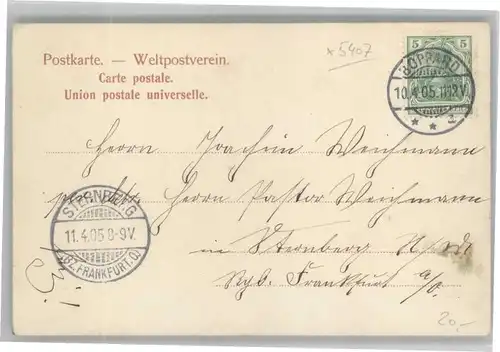 Postkarte. — Weltpostverein.
Carte postale.
Union postale universelle.
x 5407
5 5
BOPPARD
10.4.05.11-12V.
* * a
Herrn Joachim Weichmann
Herrn Pastor Weichmann
in Sternberg N/M.
Rgb. Frankfurt a/O.
STERNBERG
11.4.05 8-9V.
(BZ. FRANKFURT. O.)
20,-